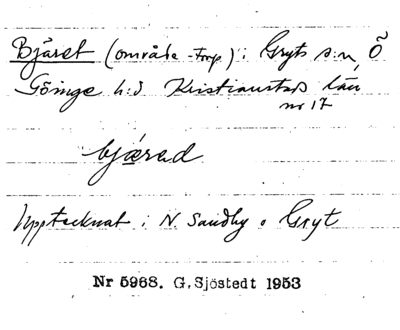 Bjäret (område - torp) i Gryts s:n, Ö
Göinge h:d Kristianstads län
nr 17
bjærəd
Upptecknat i N. Sandby o Gryt
Nr 5968. G. Sjöstedt 1953